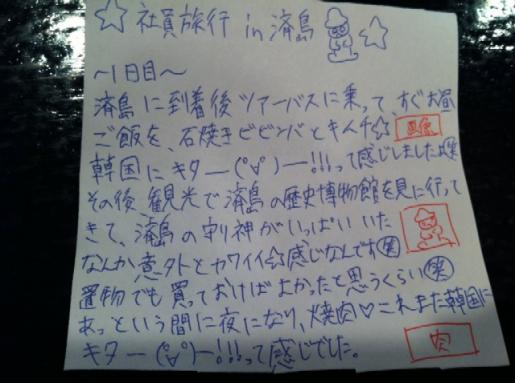 ☆社員旅行 in 済島☆
〜1日目〜
済島に到着後ツアーバスに乗って、すぐお昼
ご飯を、石焼きビビンバとキムチ☆
韓国にキター(°∀°)ー!!!って感じしましたよ笑
その後、観光で済島の歴史博物館を見に行って
きて、済島の守り神がいっぱいいた
なんか意外とカワイイ☆感じなんです笑
置物でも買っておけばよかったと思うくらい笑
あっという間に夜になり、焼肉♡これまた韓国に
肉
キター(°∀°)ー!!!って感じでした。